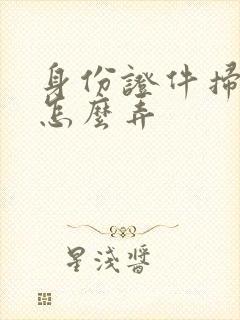 身份證件掃
怎麼弄
星淺醬